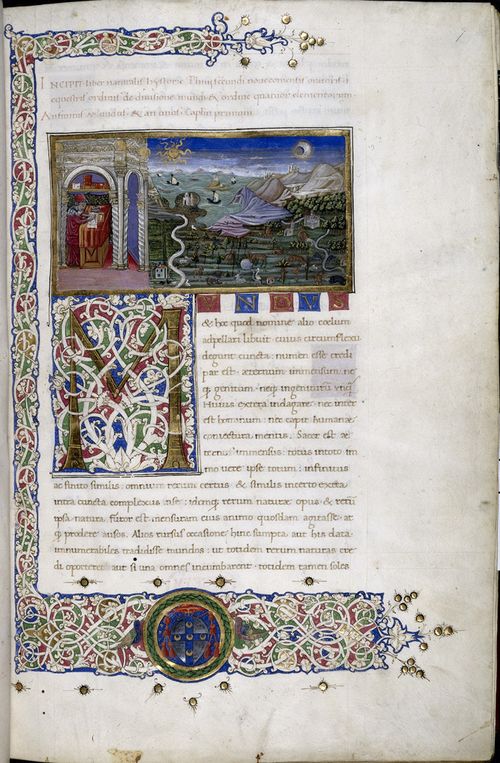 INCIPIT liber naturalis hystorie Plinii secundi
equestris ordinis de diuisione mundi & ordine quatuor elementorum
MUNDUS
& hoc quod nomine alio coelum
adpellari libuit cuius circumflexu
degunt cuncta: numen esse credi
par est. aeternum immensum. ne
q; genitum. neq; interiturum unq
Huius extera indagare. nec inter
est hominum nec capit humanae
coniectura mentis. Sacer est ae
ternus immensus: totus in toto im
mo uero ipse totum: infinitus
ac finito similis: omnium rerum certus & similis incerto extra
intra cuncta complexus in se: idemq; rerum naturae opus & rerum
ipsa natura. furor est mensuram eius animo quosdam agitasse at
q; prodere ausos. Alios rursus occasione hinc sumpta aut his data
innumerabiles tradidisse mundos: ut totidem rerum naturas cre
di oporteret aut si una omnes incumbarent. totidem tamen soles